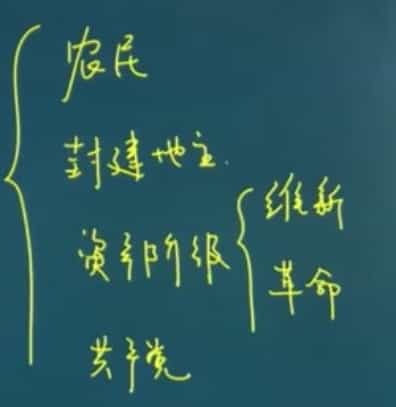 农民
封建地主.
资产阶级
维新
革命
共产党